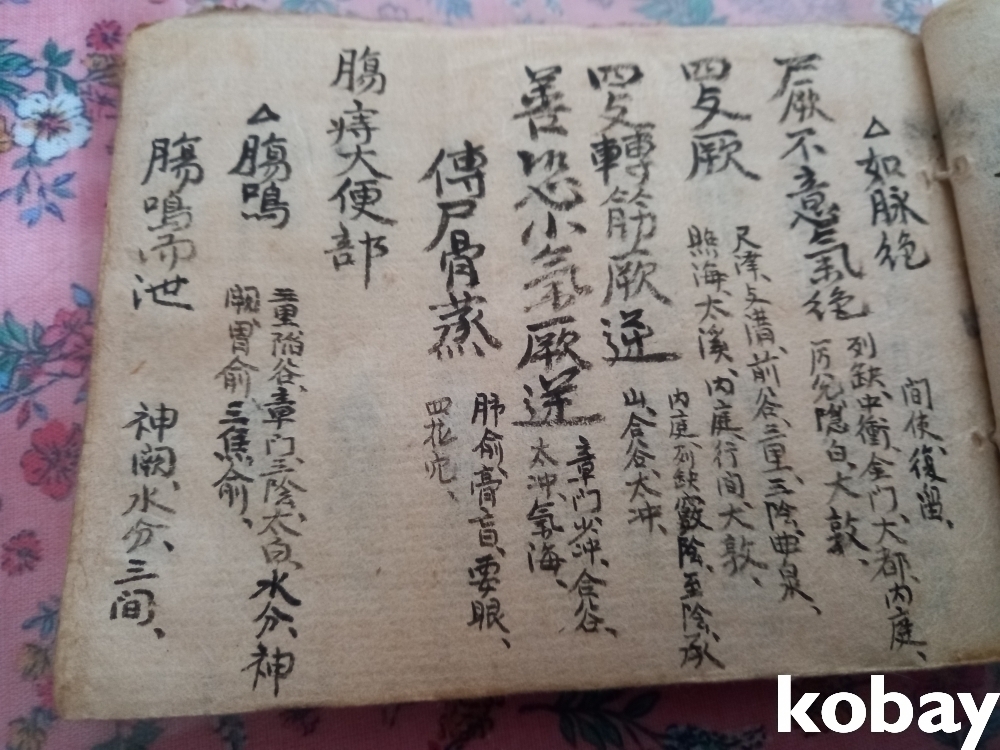 △如脉絶
間使、復溜、
尸厥不意氣絶
列缺、中衝、金門、大都、内庭、
厉兌、隠白、大敦、
四支厥
尺澤、支溝、前谷、三里、三陰、曲泉、
照海、太溪、内庭、行间、大敦、
四支轉筋厥逆
内庭、列缺、竅陰、至陰、承
山、合谷、太冲、
善恐心小氣厥逆
章門、少冲、合谷、
太冲、氣海、
傳尸骨蒸
肺俞、膏盲、要眼、
四花穴、
腸痔大便部
△腸鳴
三里、陥谷、章門、三陰、太白、水分、神
闕、胃俞、三焦俞、
腸鳴而泄
神闕、水分、三间、
kobay